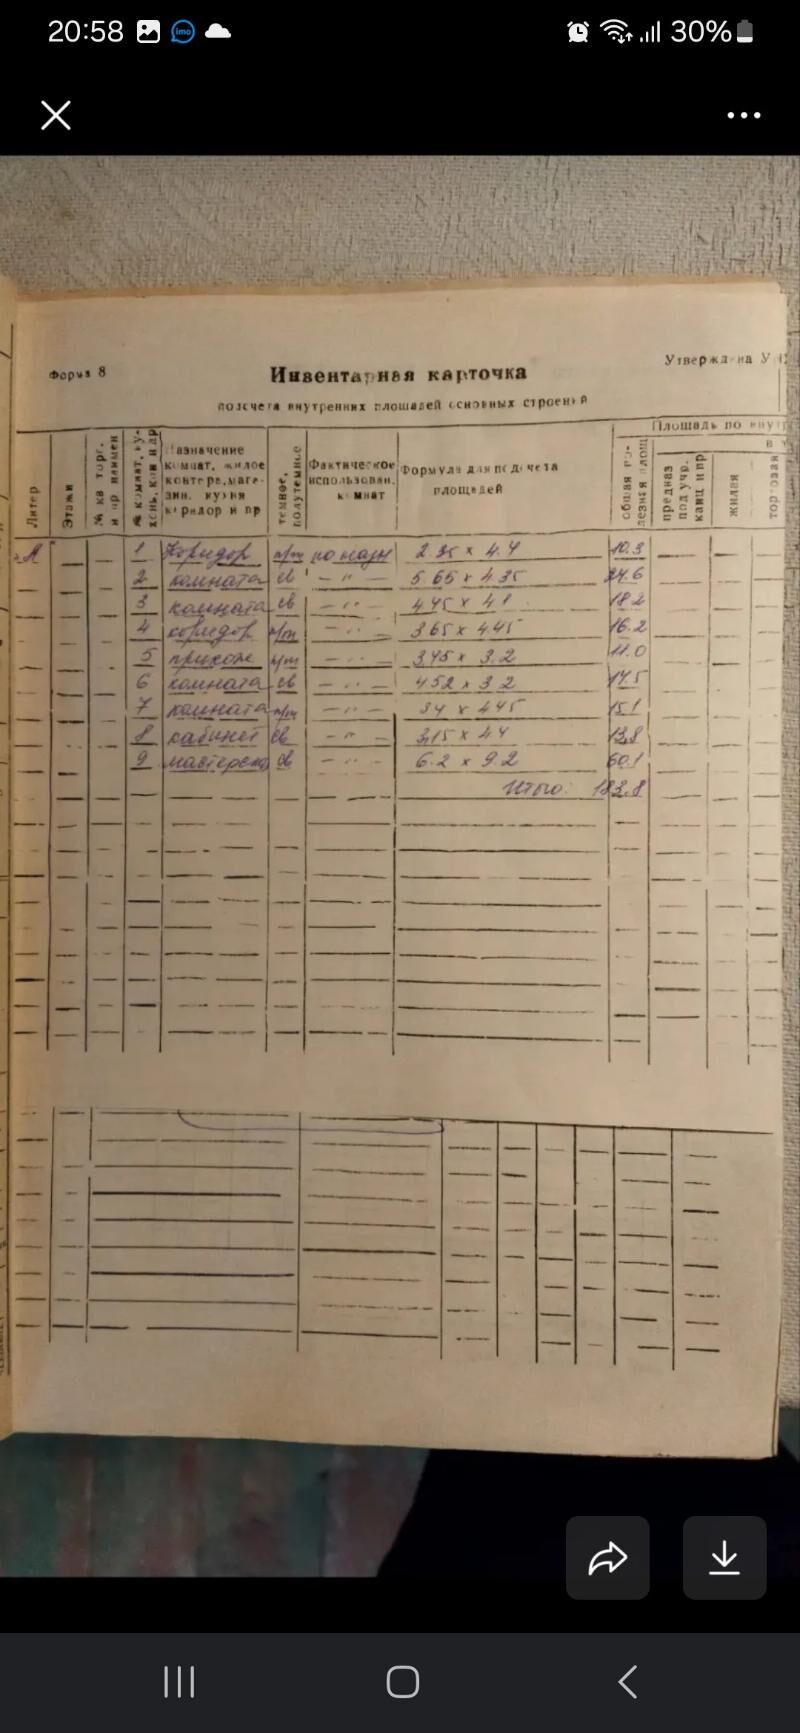 20:58
imo
30%
Форма 8
Инвентарная карточка
Утверждена У
подсчета внутренних площадей основных строений
Площадь по внут
в т
Литер
Этажи
№ кв торг. и пр
№ комнат, кухень,
Назначение
комнат, жилое
контора, магазин, кухня
коридор и пр
темное, полутемное
Фактическое
использован.
комнат
Формула для подсчета
площадей
общая полезная площ
предназ под учр. канц и пр
жилая
торговая
"А" 1 Коридор п/т по назн 2.35 x 4.4 10.3
2 комната св - " - 5.65 x 4.35 24.6
3 комната св - " - 4.45 x 4.1 18.2
4 коридор п/т - " - 3.65 x 4.45 16.2
5 прихож п/т - " - 3.45 x 3.2 11.0
6 комната св - " - 4.52 x 3.2 14.5
7 комната п/т - " - 3.4 x 4.45 15.1
8 кабинет св - " - 3.15 x 4.4 13.8
9 мастерска св - " - 6.2 x 9.2 60.1
Итого: 183.8